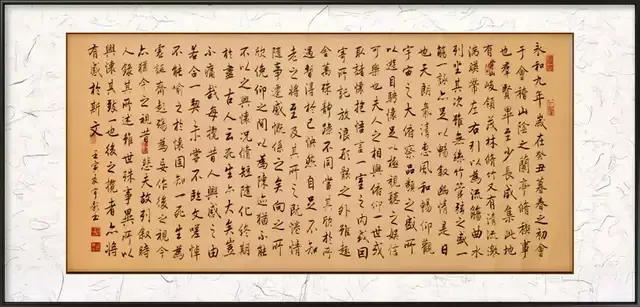 永和九年歲在癸丑暮春之初會
于會稽山陰之蘭亭脩禊事
也羣賢畢至少長咸集此地
有峻領茂林脩竹又有清流激
湍暎帶左右引以為流觴曲水
列坐其次雖無絲竹管弦之盛一
觴一詠亦足以暢敘幽情是日
也天朗氣清惠風和暢仰觀
宇宙之大俯察品類之盛所
以遊目騁懷足以極視聽之娛信
可樂也夫人之相與俯仰一世或
取諸懷抱悟言一室之內或因
寄所託放浪形骸之外雖趣
舍萬殊靜躁不同當其欣於所
遇暫得於己怏然自足不知
老之將至及其所之既惓情
隨事遷感慨係之矣向之所
欣俛仰之間以為陳迹猶不能
不以之興懷況脩短隨化終期
於盡古人云死生亦大矣豈
不痛哉每攬昔人興感之由
若合一契未嘗不臨文嗟悼
不能喻之於懷固知一死生為
虛誕齊彭殤為妄作後之視今
亦猶今之視昔悲夫故列敘時
人錄其所述雖世殊事異所以
興懷其致一也後之攬者亦將
有感於斯文